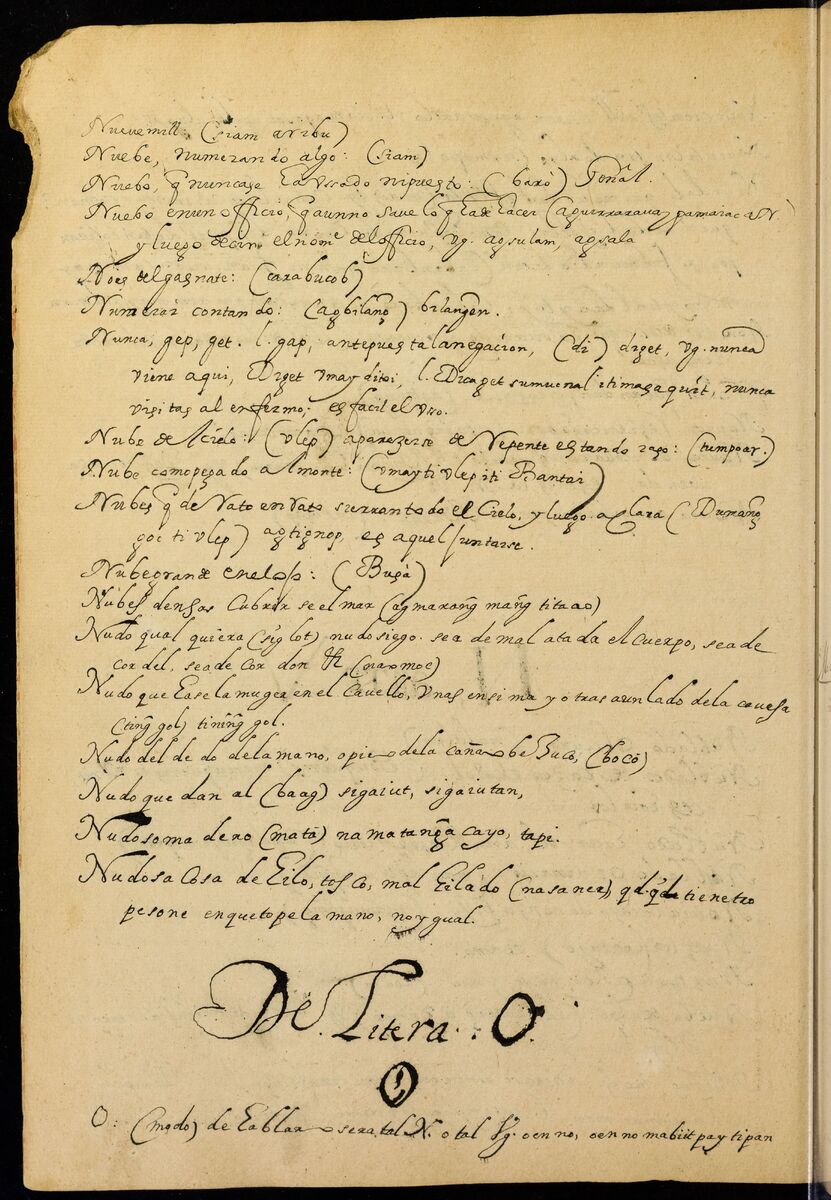 Nueve mill: (siam a ribu)
Nuebe, numerando algo: (siam)
Nuebo, q̃ nuncase ha vssado nipuesto: (baró) Gen̄al.
Nuebo enun officio, q̃ aunno save lo q̃ hade hacer
y luego decir el nom.e del officio, vg. agsulam, agsala
Nóes del gasnate: (carabucob)
Numerar contando: (agbilang̃) bilangẽn.
Nunca, gep, get. l. gap, antepuesta lanegacion, (di) diget, vg. nunca
viene aqui, Diget vmay ditoi, l. Dicaget sumuc nal iti masaquit, nunca
visitas al enfermo, es facil el vso.
Nube de l cielo: (vlep) aparezerse de Repente estando raso: (tumpoar.)
Nube como pegado al monte: (vmayti vlep iti Bantai)
Nubes q̃ de Rato en Rato surranto do el Cielo, y luego a Clara (Dumang̃
goc ti vlep) agtignop, es aquel juntarse.
Nube grande enelor: (Busà)
Nubes densas Cubrir se el mar (ag marang̃ mang̃ titaao)
Nudo qual quiera (siglot) nudo siego. sea de mal ata da el Cuerpo, sea de
cor del, sea de Cor don (naromoc)
Nudo que hase la muger en el Cavello, vnas ensima y o tras aun lado dela cavesa
(ting̃ gol) tining̃ gol.
Nudo del de do dela mano, o pie o dela caña o be Buco, (bocó)
Nudo que dan al (baag) sigaiut, sigaiutan,
Nudoso ma dero (matà) na matang̃a cayo, tapi.
Nudosa Cosa de hilo, tosco, mal hilado (nasaner), tienetro
pesone enquetope la mano, no y gual.
De. Litera. O.
O: (modo) de hablar o sera tal N. o tal vg. oen no, oen no mabiit pay ti pan